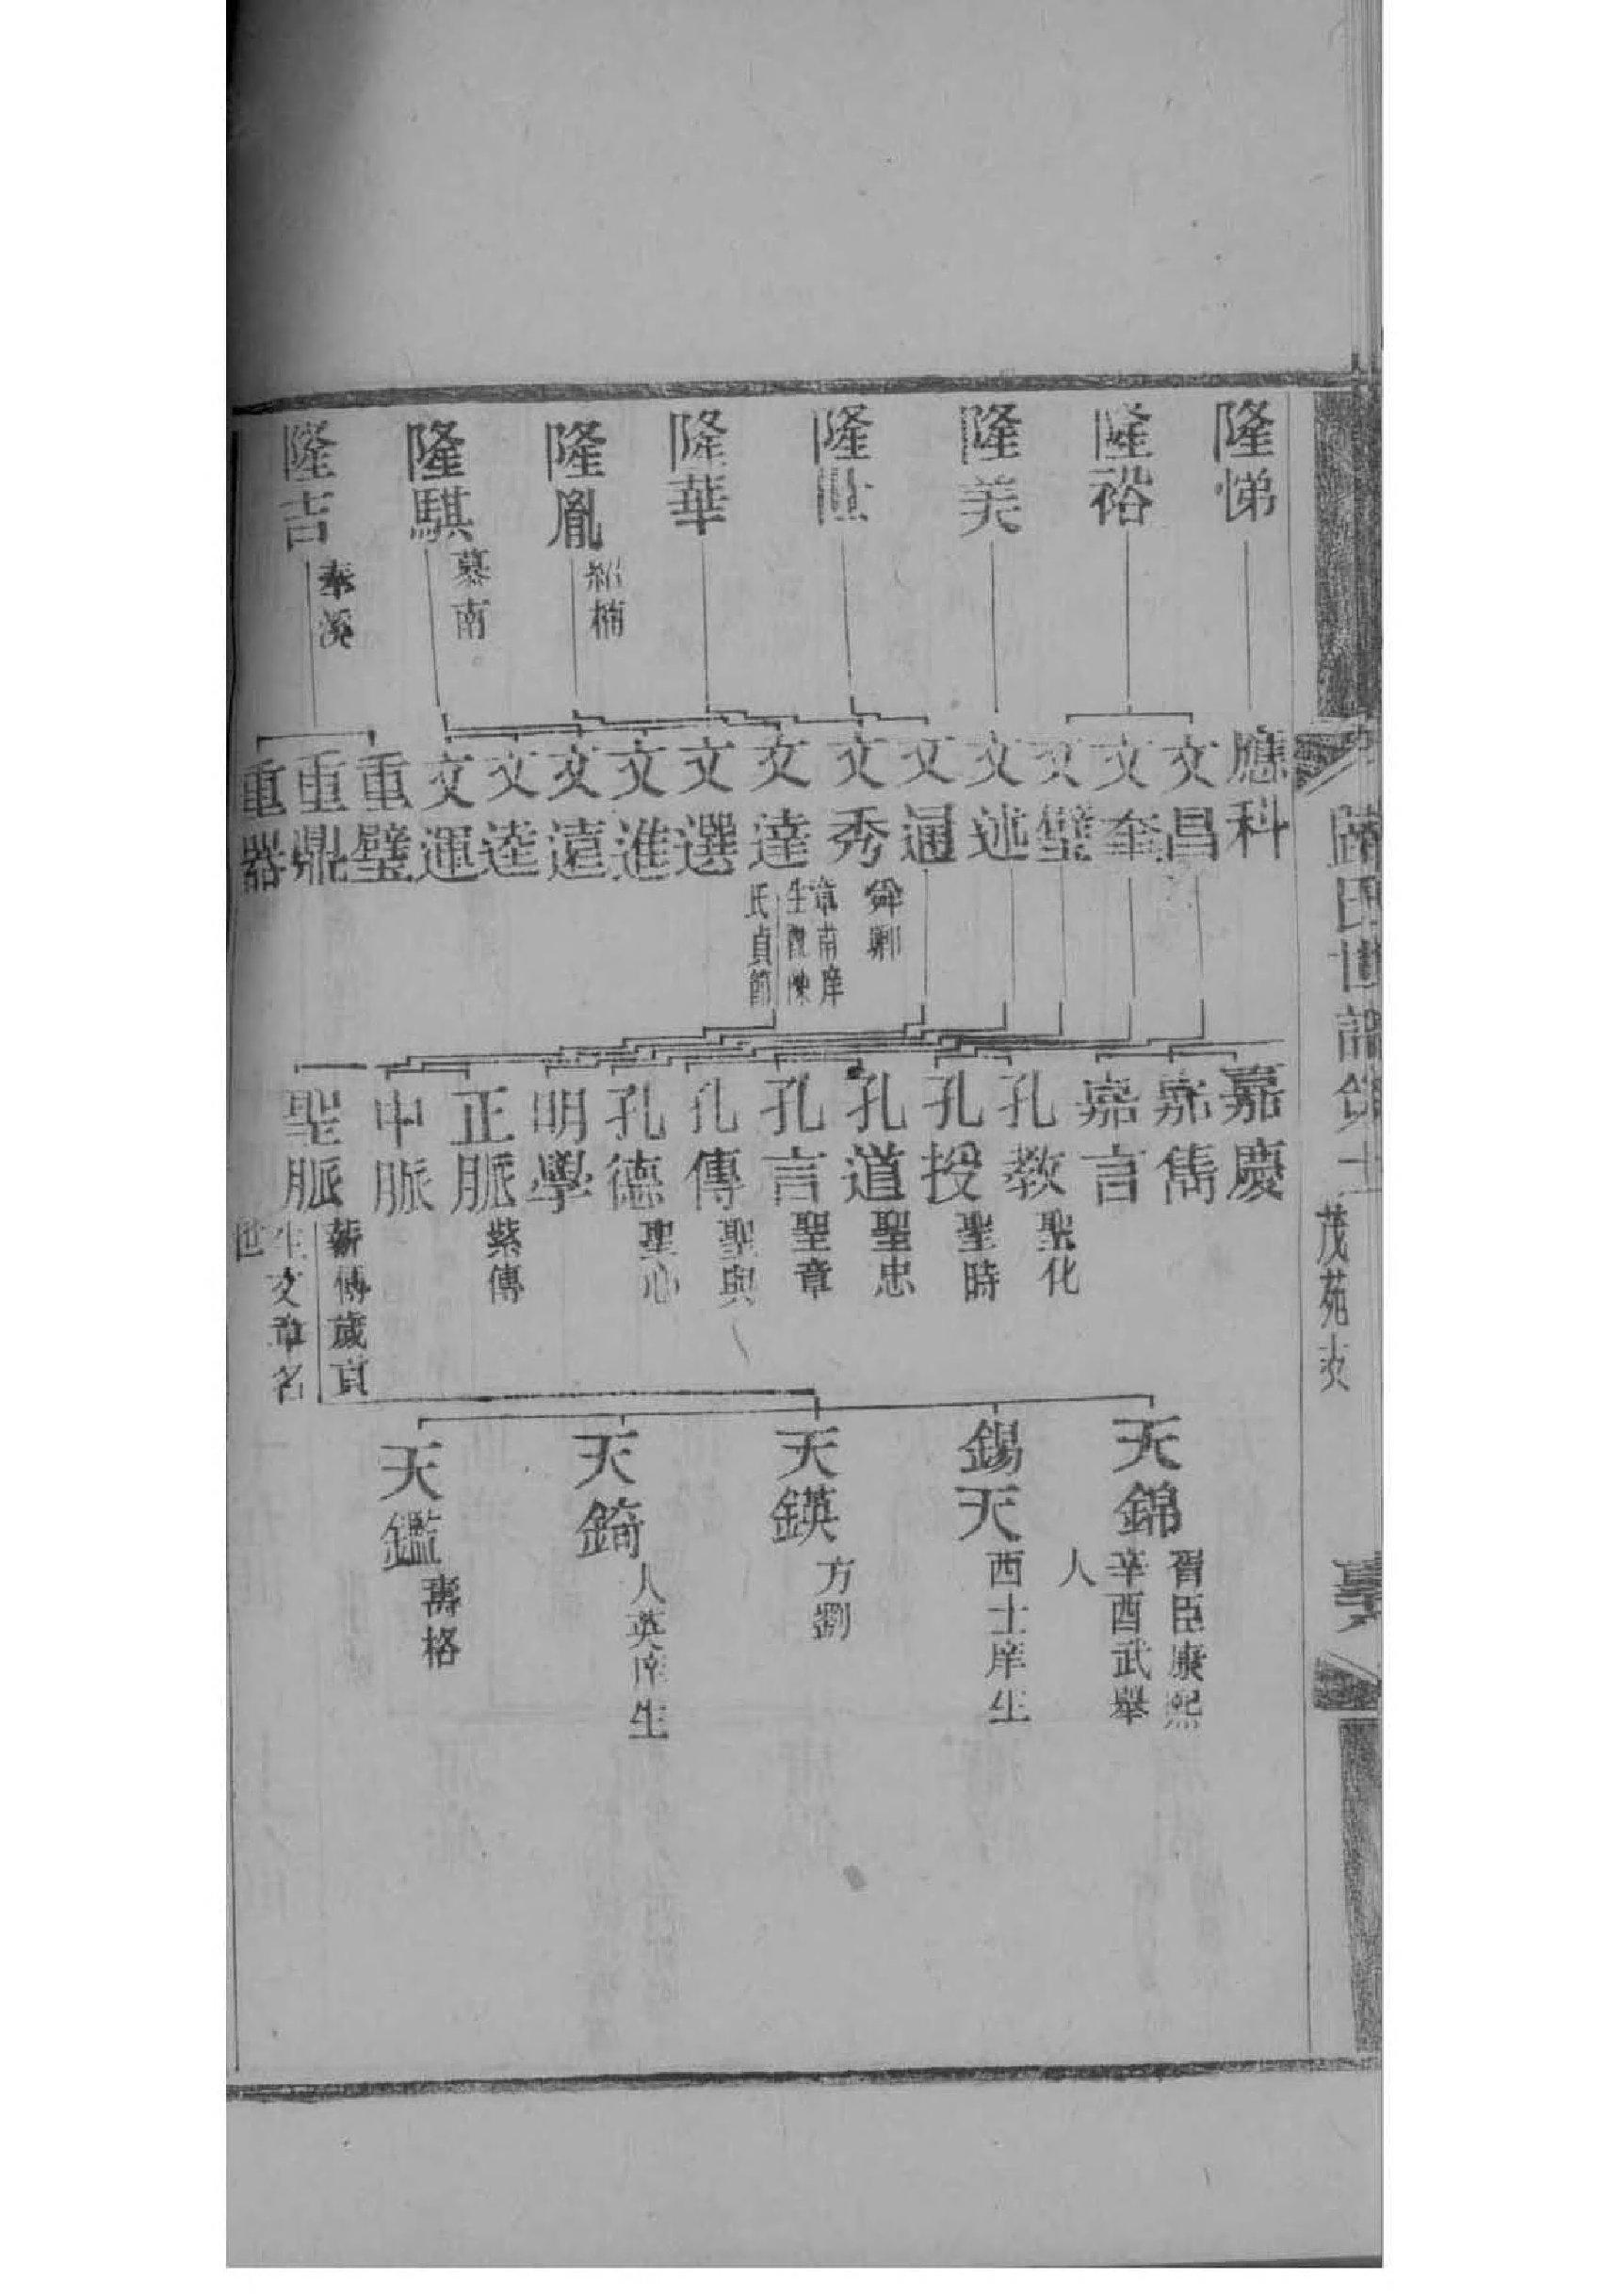 氏世譜
茂苑支
隆悌
隆裕
隆美
隆
隆華
隆胤 紹楠
隆騏 慕南
隆吉 奉溪
應科
文昌
文奎
文璧
文述
文通
文秀 舜卿
文達 章南庠
生
氏貞節
文選
文進
文遠
文逵
文運
重璧
重鼎
重器
嘉慶
嘉雋
嘉言
孔教 聖化
孔授 聖時
孔道 聖忠
孔言 聖章
孔傳 聖與
孔德 聖心
明學
正脈 紫傳
中脈
聖脈 薪傳歲貢
生文章名
世
天錦 胥臣康熙
辛酉武舉
人
錫天 西士庠生
天鍈 方劉
天錡 人英庠生
天鑑 壽格